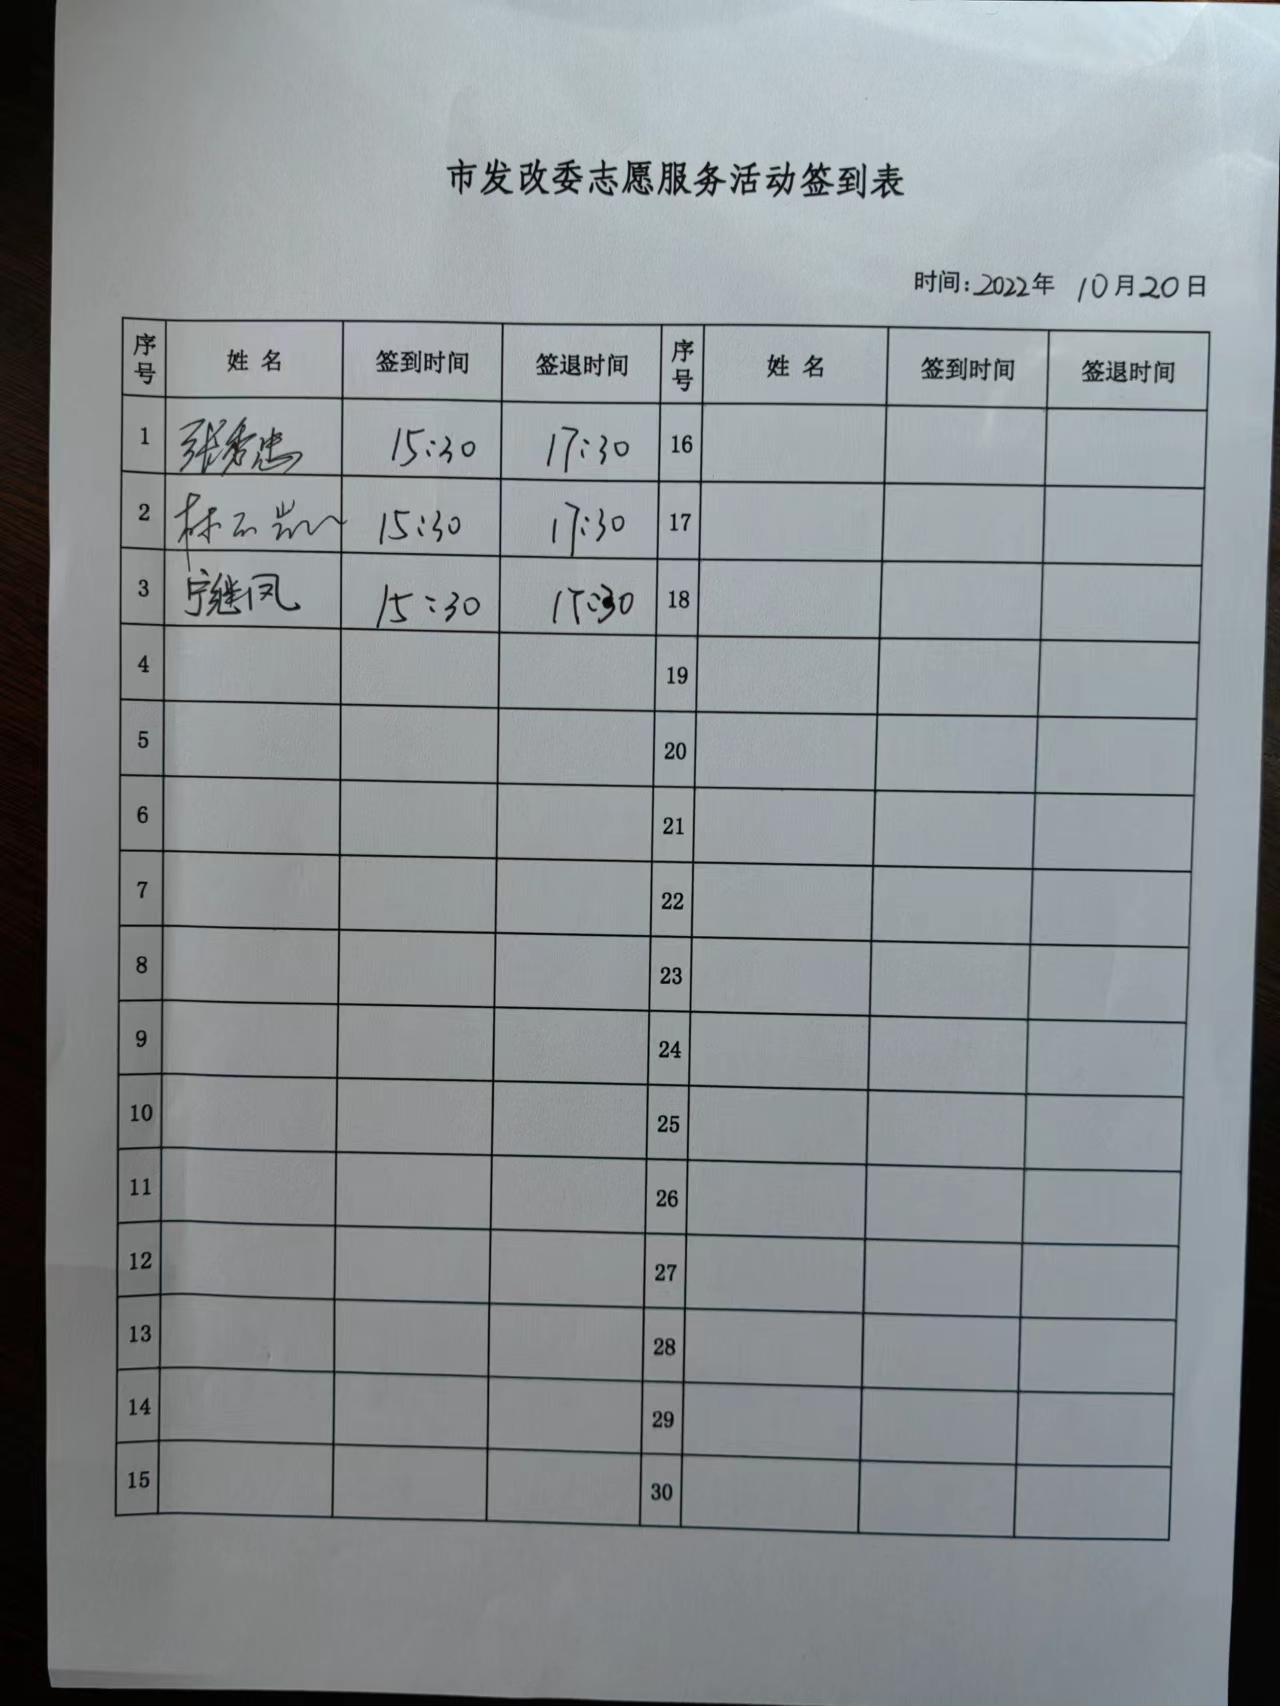 市发改委志愿服务活动签到表
时间:2022年 10月20日
序号 姓名 签到时间 签退时间 序号 姓名 签到时间 签退时间
1 张秀忠 15:30 17:30 16
2 林 15:30 17:30 17
3 宁继凤 15:30 17:30 18
4 19
5 20
6 21
7 22
8 23
9 24
10 25
11 26
12 27
13 28
14 29
15 30